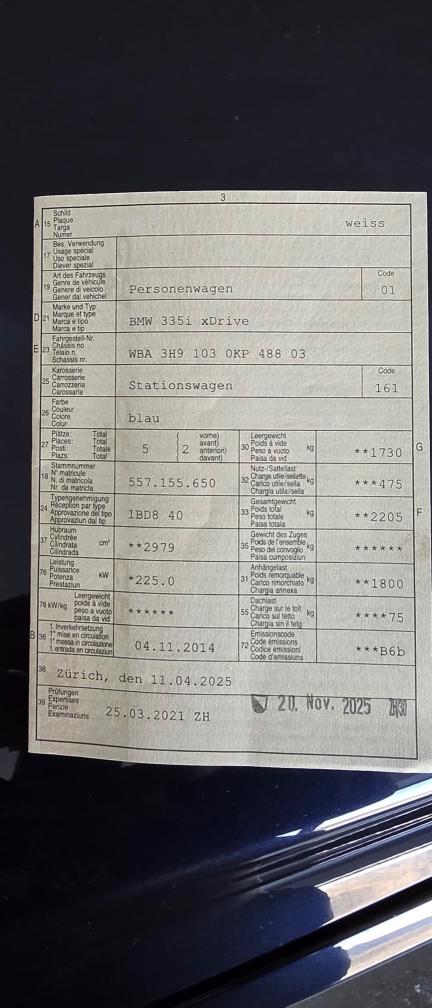 3
A 15 Schild
Plaque
Targa
Numer
weiss
17 Bes. Verwendung
Usage spécial
Uso speciale
Diever spezial
19 Art des Fahrzeugs
Genre de véhicule
Genere di veicolo
Gener dal vehichel
Personenwagen
Code
01
D 21 Marke und Typ
Marque et type
Marca e tipo
Marca e tip
BMW 335i xDrive
E 23 Fahrgestell-Nr.
Châssis no
Telaio n.
Schassis nr.
WBA 3H9 103 0KP 488 03
25 Karosserie
Carrosserie
Carrozzeria
Carossaria
Stationswagen
Code
161
26 Farbe
Couleur
Colore
Colur
blau
27 Plätze: Total
Places: Total
Posti: Totale
Plazs: Total
5
( 2
vorne)
avant)
anteriori)
davant)
30 Leergewicht
Poids à vide
Peso a vuoto
Paisa da vid
kg
**1730
G
18 Stammnummer
N° matricule
N. di matricola
Nr. da matricla
557.155.650
32 Nutz-/Sattellast
Charge utile/sellette
Carico utile/sella
Chargia utila/sella
kg
***475
24 Typengenehmigung
Réception par type
Approvazione del tipo
Approvaziun dal tip
1BD8 40
33 Gesamtgewicht
Poids total
Peso totale
Paisa totala
kg
**2205
F
37 Hubraum
Cylindrée
Cilindrata
Cilindrada
cm³
**2979
35 Gewicht des Zuges
Poids de l'ensemble
Peso del convoglio
Paisa cumposiziun
kg
******
76 Leistung
Puissance
Potenza
Prestaziun
kW
*225.0
31 Anhängelast
Poids remorquable
Carico rimorchiato
Chargia annexa
kg
**1800
78 kW/kg
Leergewicht
poids à vide
peso a vuoto
paisa da vid
******
55 Dachlast
Charge sur le toit
Carico sul tetto
Chargia sin il tetg
kg
****75
B 36 1. Inverkehrsetzung
1re mise en circulation
1a messa in circolazione
1. entrada en circulaziun
04.11.2014
72 Emissionscode
Code émissions
Codice emissioni
Code d'emissiuns
***B6b
38
Zürich, den 11.04.2025
39 Prüfungen
Expertises
Perizie
Examinaziuns
25.03.2021 ZH
20. Nov. 2025